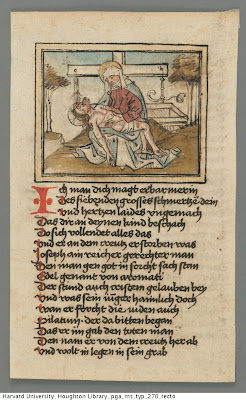 Ich man dich magt erbarmerin
Des siebenden grosses schmertze dein
Vnd hertzen laides vngemach
Das dir an deynen kind beschach
Do sich vollendet alles das
Vnd er an dem creutz erstorben was
Joseph ain reicher gerechter man
Den man gen got in forcht sach stan
Edel genannt von aromati
Der stund auch vestem gelauben bey
Vnd was sein iuger hainlich doch
Wan er forcht die iuden auch
Pilatum der da bitten began
Das er im gab den toten man
Den nam er von dem creutz her ab
Vnd wolt in legen in sein grab
Harvard University, Houghton Library, pga_ms_typ_270_recto